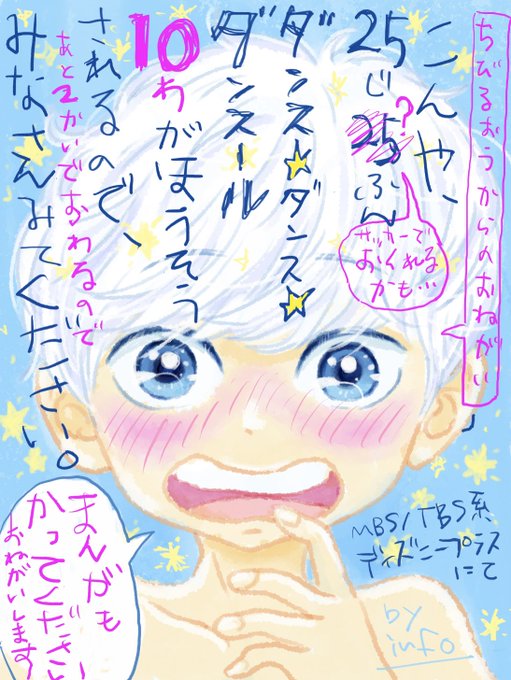 ちびるおうからのおねがい
こんや、
25じ25ふん
?
サッカーで
おくれる
かも…
ダンス☆ダンス☆
ダンスール
10わがほうそう
されるので、
あと2かいでおわるので
みなさんみてください。
まんがも
かってください
おねがいします
MBS/TBS系
ディズニープラス
にて
by
info